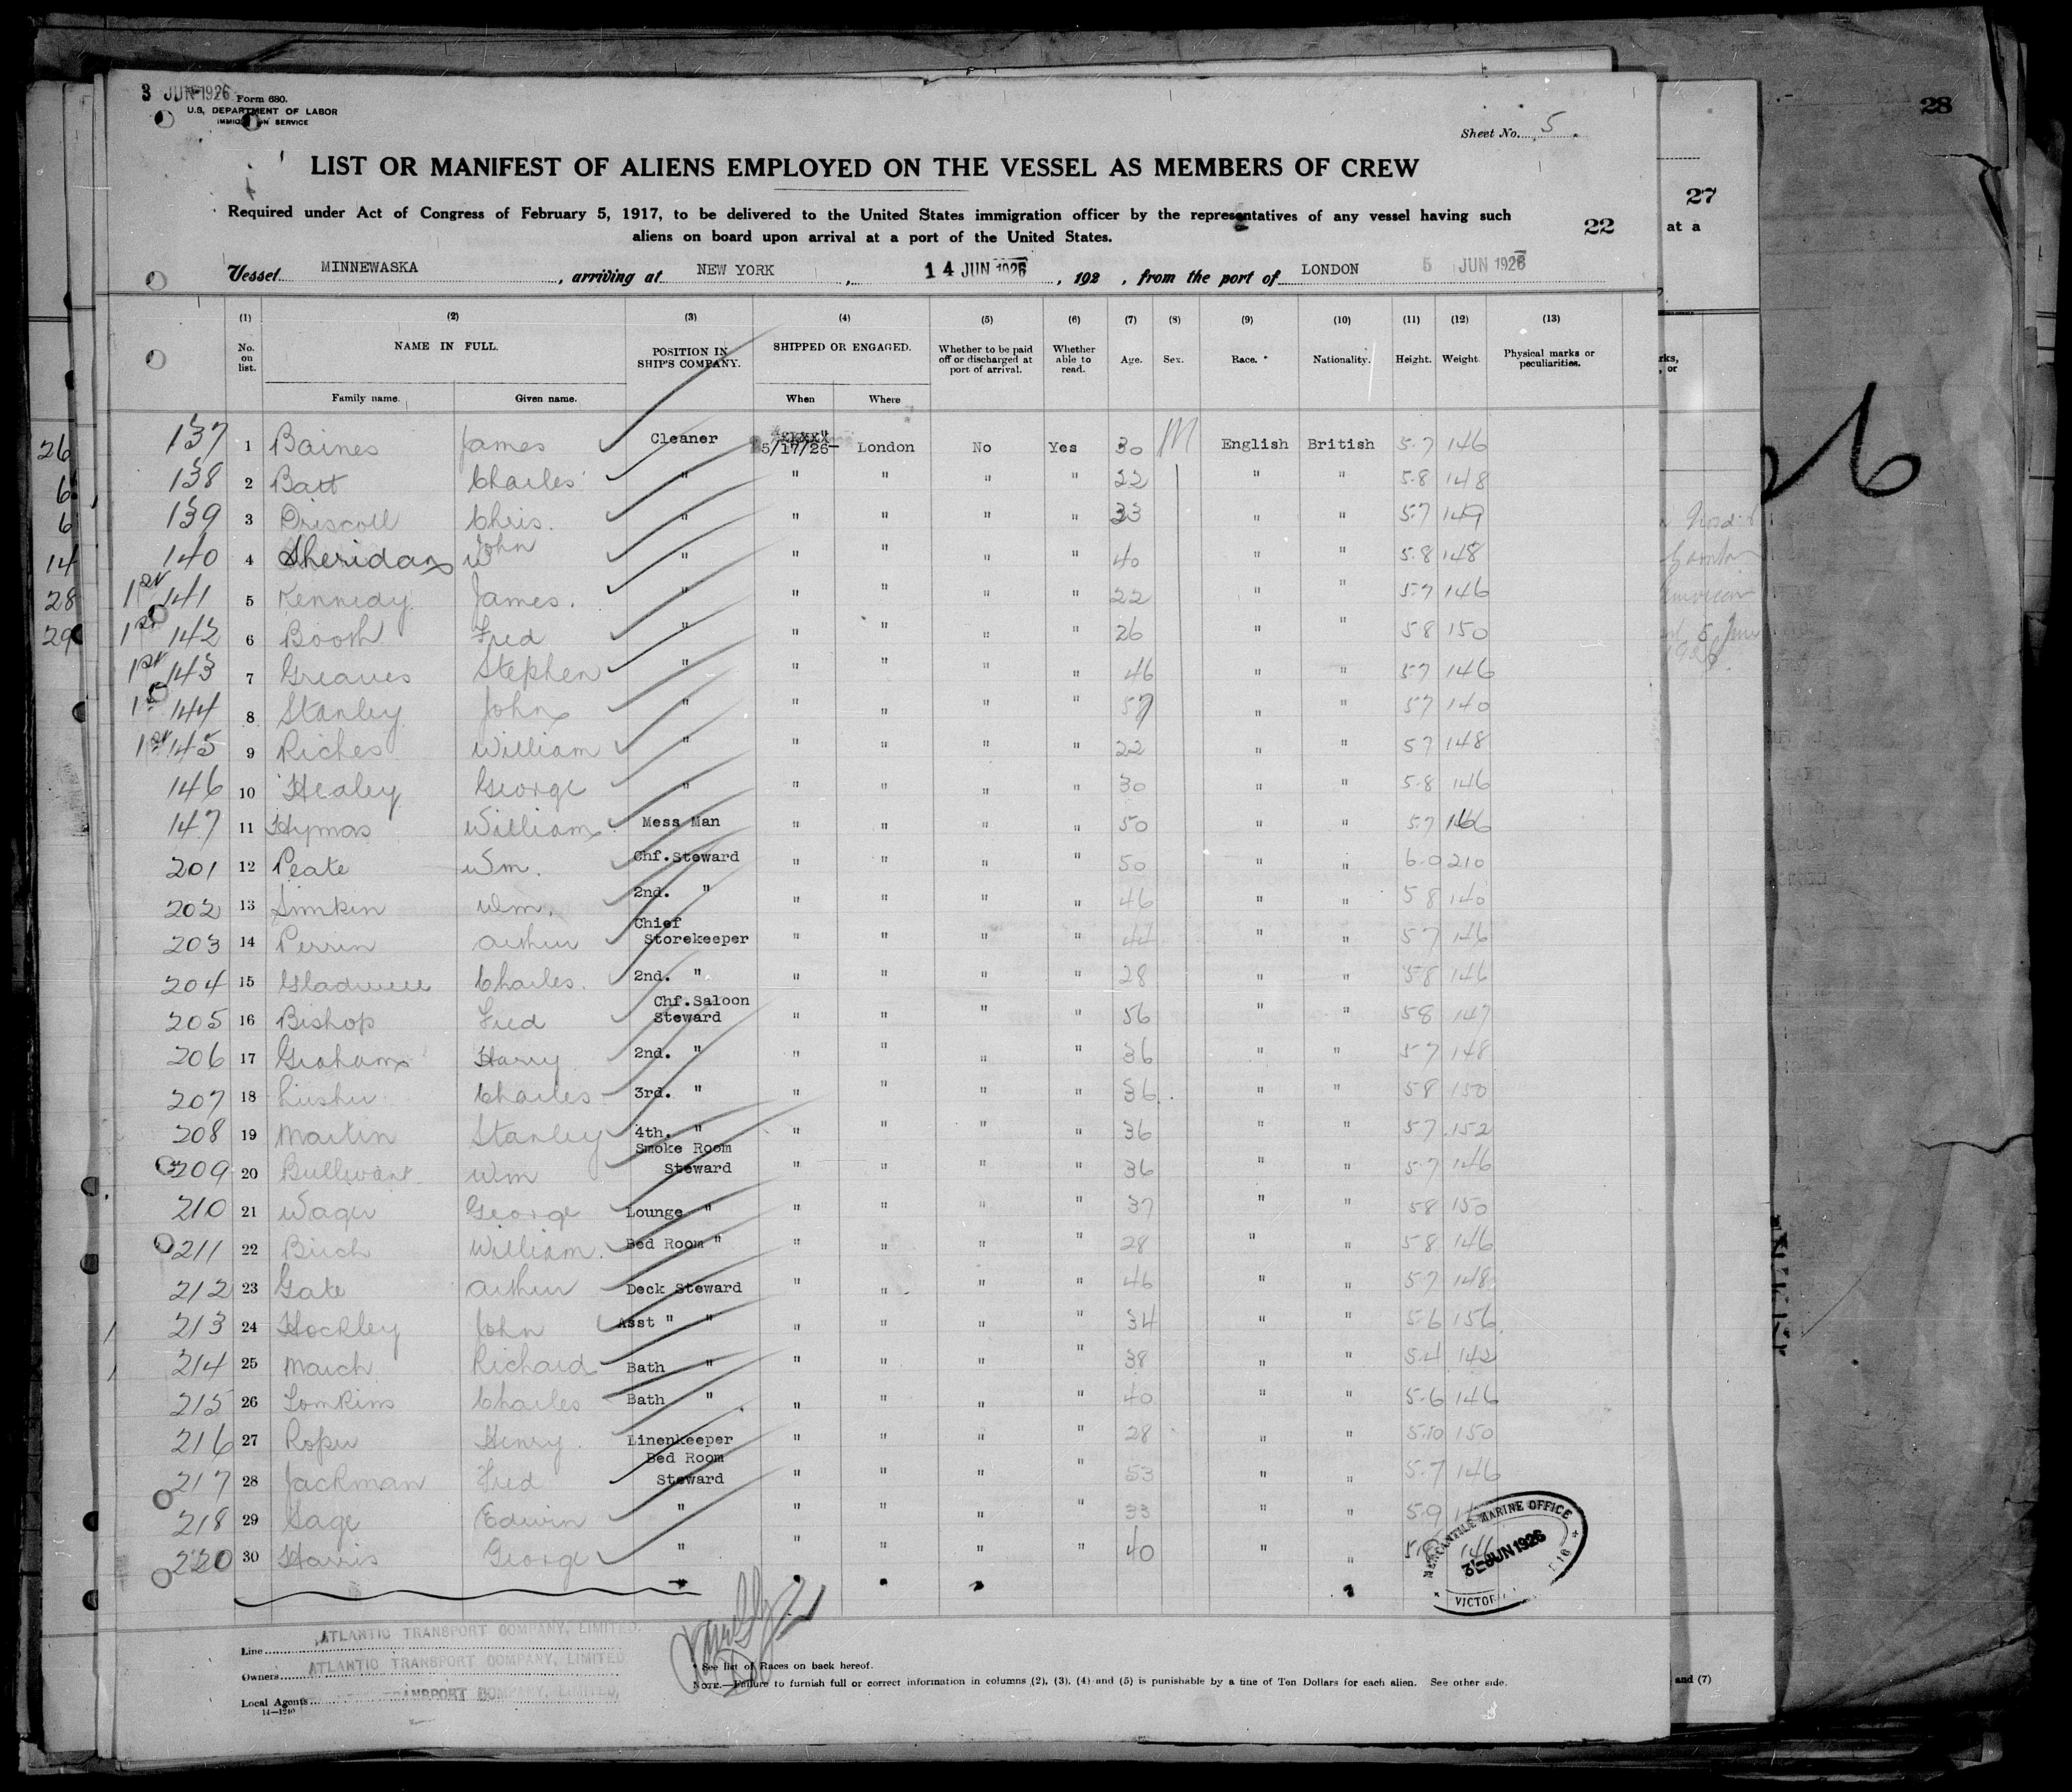 3 JUN 1926 Form 680.
U.S. DEPARTMENT OF LABOR
IMMIGRATION SERVICE
28
Sheet No. 5
LIST OR MANIFEST OF ALIENS EMPLOYED ON THE VESSEL AS MEMBERS OF CREW
27
Required under Act of Congress of February 5, 1917, to be delivered to the United States immigration officer by the representatives of any vessel having such
aliens on board upon arrival at a port of the United States.
22
at a
Vessel MINNEWASKA, arriving at NEW YORK, 14 JUN 1926, 192 , from the port of LONDON 5 JUN 1926
(1) (2) (3) (4) (5) (6) (7) (8) (9) (10) (11) (12) (13)
No. on list. NAME IN FULL. POSITION IN SHIP'S COMPANY. SHIPPED OR ENGAGED. Whether to be paid off or discharged at port of arrival. Whether able to read. Age. Sex. Race.* Nationality. Height. Weight. Physical marks or peculiarities.
Family name. Given name. When Where
137 1 Baines James Cleaner 5/17/26- London No Yes 30 M English British 5-7 146
138 2 Batt Charles " " " " " 22 " " 5-8 148
139 3 Driscoll Chris. " " " " " 33 " " 5-7 149
140 4 Sheridan John W " " " " " 40 " " 5-8 148
141 5 Kennedy James. " " " " " 22 " " 5-7 146
142 6 Booth Fred " " " " " 26 " " 5 8 150
143 7 Greaves Stephen " " " " " 46 " " 5-7 146
144 8 Stanley John " " " " " 57 " " 5 7 140
145 9 Riches William " " " " " 22 " " 5 7 148
146 10 Healey George " " " " " 30 " " 5-8 146
147 11 Hymas William Mess Man " " " " 50 " " 5-7 166
201 12 Peate Wm. Chf. Steward " " " " 50 " " 6-0 210
202 13 Simkin Wm. 2nd. " " " " " 46 " " 5 8 140
203 14 Perrin Arthur Chief Storekeeper " " " " 44 " " 5 7 146
204 15 Gladwell Charles. 2nd. " " " " " 28 " " 5-8 146
205 16 Bishop Fred Chf. Saloon Steward " " " " 56 " " 5 8 147
206 17 Graham Harry 2nd. " " " " " 36 " " 5-7 148
207 18 Lusher Charles 3rd. " " " " " 36 " " 5 8 150
208 19 Martin Stanley 4th. " " " " " 36 " " 5-7 152
209 20 Bullivant Wm Smoke Room Steward " " " " 36 " " 5-7 146
210 21 Wager George Lounge " " " " " 37 " " 5 8 150
211 22 Birch William. Bed Room " " " " " 28 " " 5 8 146
212 23 Gate Arthur Deck Steward " " " " 46 " " 5-7 148
213 24 Hockley John Asst " " " " " " 34 " " 5-6 156
214 25 March Richard Bath " " " " " 38 " " 5-4 142
215 26 Tomkins Charles Bath " " " " " 40 " " 5-6 146
216 27 Roper Henry Linenkeeper " " " " 28 " " 5-10 150
217 28 Jackman Fred Bed Room Steward " " " " 53 " " 5-7 146
218 29 Sage Edwin " " " " " 33 " " 5-9
220 30 Harris George " " " " " 40 " " 146
MERCANTILE MARINE OFFICE
3 - JUN 1926
Line ATLANTIC TRANSPORT COMPANY, LIMITED.
Owners ATLANTIC TRANSPORT COMPANY, LIMITED
Local Agents TRANSPORT COMPANY, LIMITED,
14—1240
* See list of Races on back hereof.
NOTE.—Failure to furnish full or correct information in columns (2), (3), (4) and (5) is punishable by a fine of Ten Dollars for each alien. See other side.
and (7)